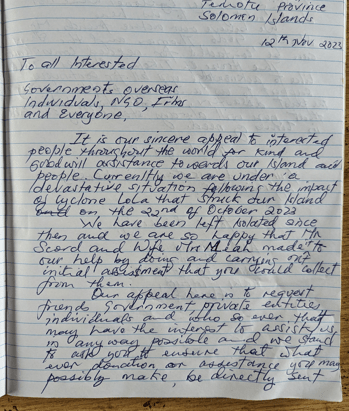 Temotu Province
Solomon Islands
12th Nov 2023
To all Interested
Governments overseas
Individuals, NGO, Firms
and Everyone,
It is our sincere appeal to interested
people throughout the world for kind and
goodwill assistance towards our Island and
people. Currently we are under a
devastative situation following the impact
of cyclone Lola that struck our Island
on the 22nd of October 2023
We have been left isolated since
then and we are so happy that Mr
and Wife Mrs made to
our help by doing and carrying out
initial assessment that you would collect
from them.
Our appeal here is to request
friends, Government, private entities
individuals and who so ever that
may have the interest to assist us
in anyway possible and we stand
to ask you to ensure that what
ever donation or assistance you may
possibly make, be directly sent